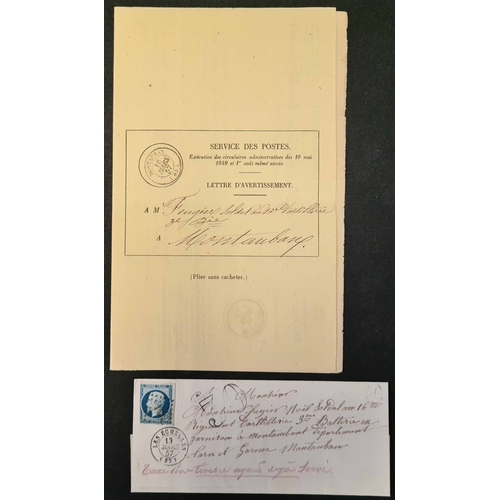 MONTAUBAN
16
57
SERVICE DES POSTES.
Exécution des circulaires administratives des 10 mai
1840 et 1er août même année.
LETTRE D'AVERTISSEMENT.
A M Feugier Soldat au d'artillerie
3e Bie
A Montauban.
(Plier sans cacheter.)
Monsieur
Monsieur Noël Soldat au 16me
Régiment d'artillerie 3me Batterie en
garnison à Montauban département
tarn et Garonne Montauban
Taxe timbre ayant déjà servi
13
57